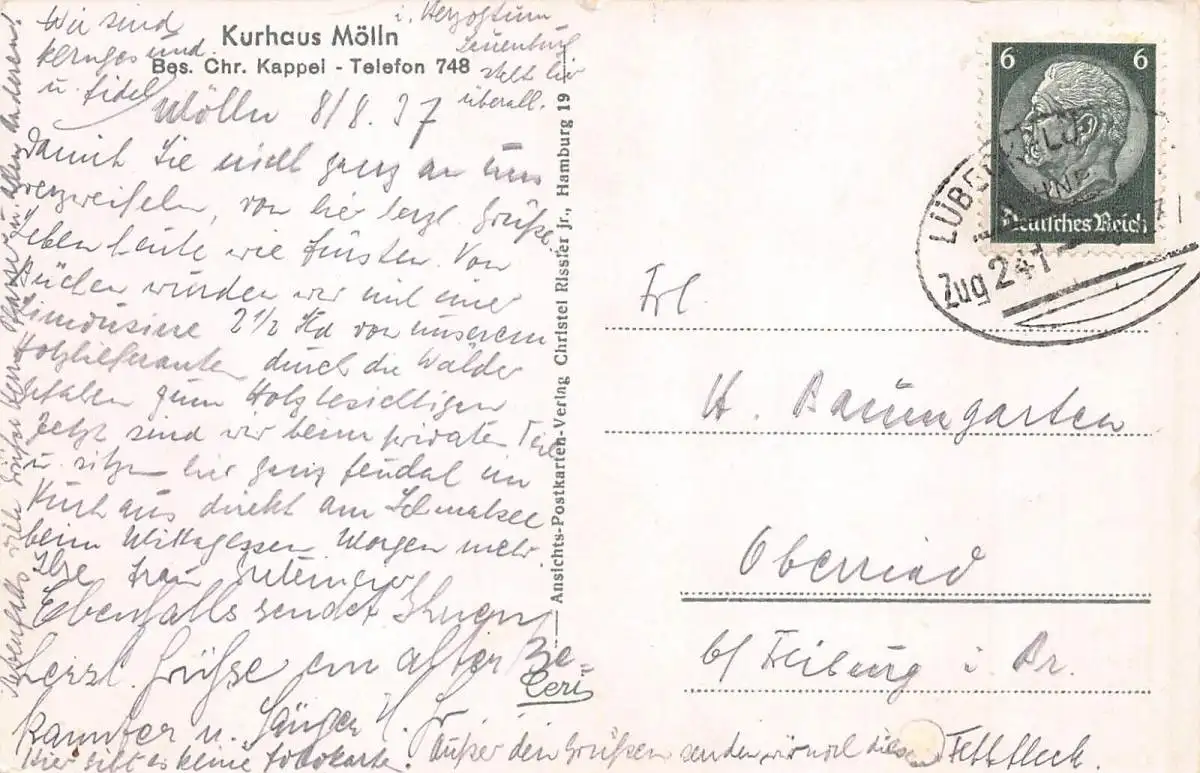 Wir sind
kerngesund
u. fidel
i. Herzogtum
Lauenburg
steht hier
überall.
Kurhaus Mölln
Bes. Chr. Kappel - Telefon 748
Mölln 8/8. 37
Damit Sie nicht ganz an uns
verzweifeln, von hier herzl. Grüße.
Leben heute wie Fürsten. Von
Büchen wurden wir mit einer
Limousine 2½ Std von unserem
Holzlieferanten durch die Wälder
gefahren zum Holzbesichtigen
Jetzt sind wir beim privaten Teil
u. sitzen hier ganz feudal im
Kurhaus direkt am Schmalsee
beim Mittagessen. Morgen mehr.
Ihre Frau
Ebenfalls sendet Ihnen
herzl. Grüße ein alter Be-
kannter u. Sänger H.
Hier gibt es keine Fotokarte.
Außer den Grüßen senden wir noch diesen Fettfleck.
Ebenfalls viele Grüße Herrn u. allen anderen!
Ansichts-Postkarten-Verlag Christel Rissler jr., Hamburg 19
6 6
Deutsches Reich
Zug 247
Frl.
H. Baumgarten
Oberried
b/ Freiburg i. Br.